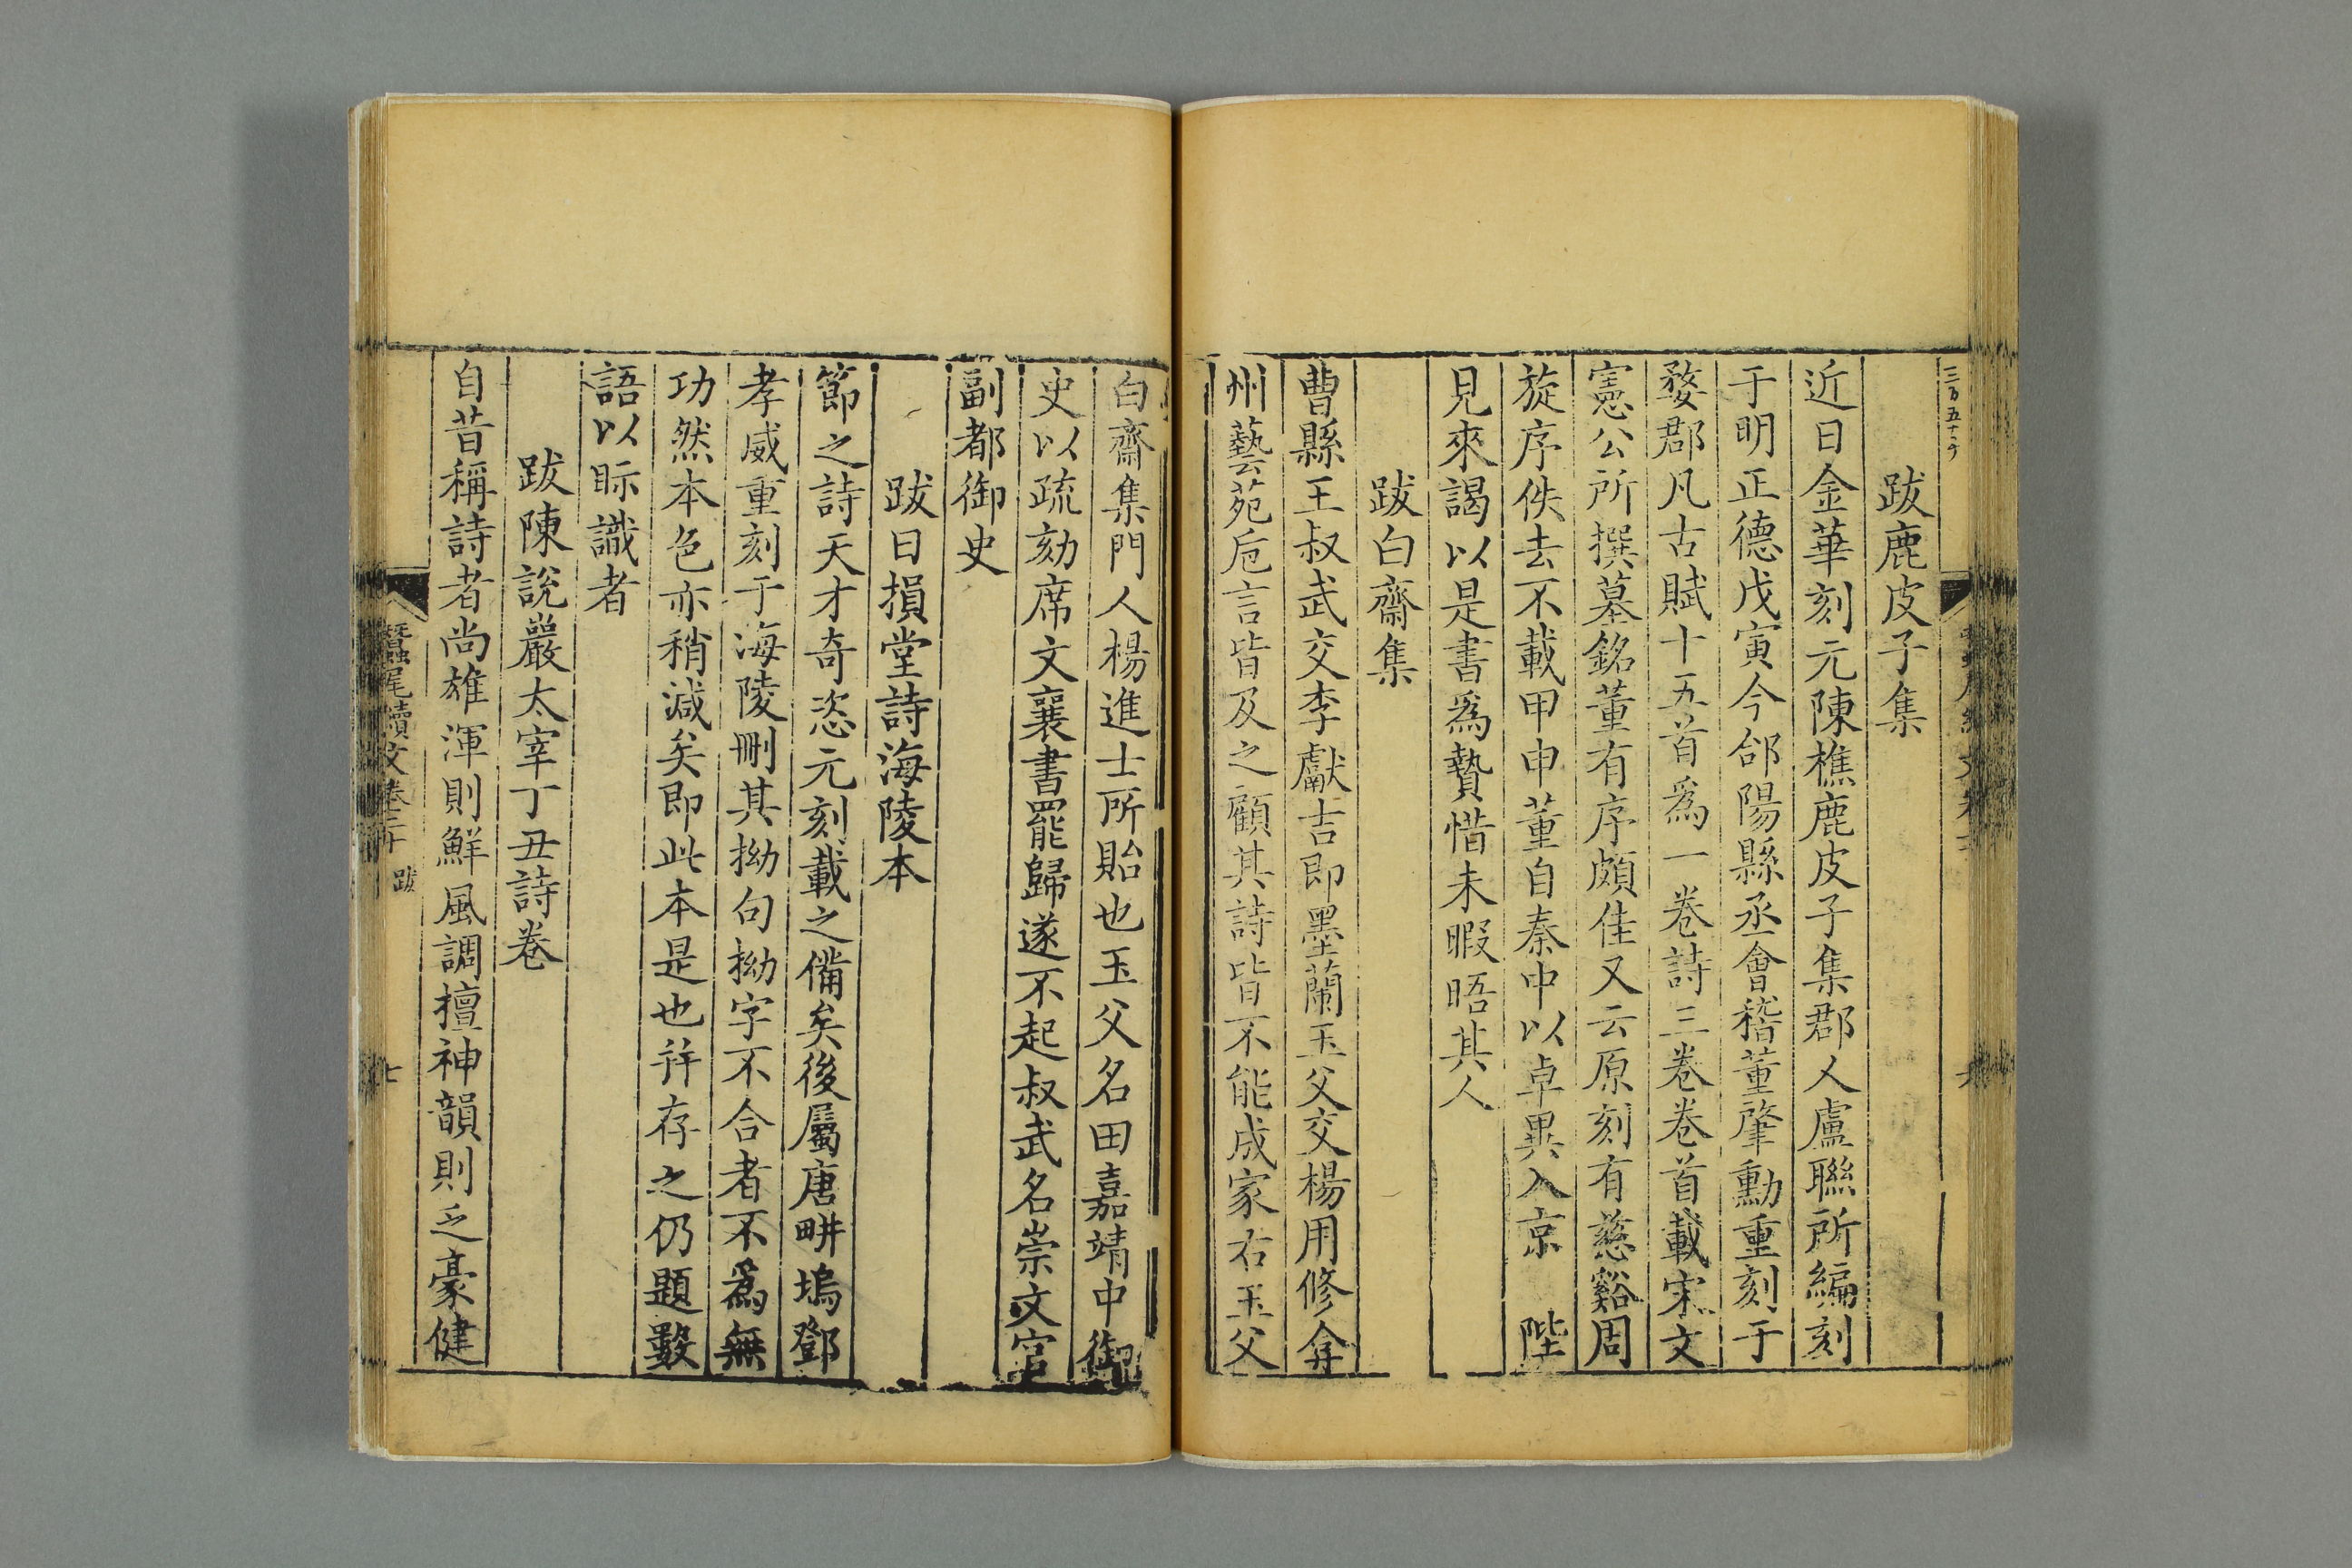 跋鹿皮子集
近日金華刻元陳樵鹿皮子集郡人盧聯所編刻
于明正德戊寅今郃陽縣丞會稽董肇勳重刻于
婺郡凡古賦十五首爲一卷詩三卷卷首載宋文
憲公所撰墓銘董有序頗佳又云原刻有慈谿周
旋序佚去不載甲申董自秦中以卓異入京　陛
見來謁以是書爲贄惜未暇晤其人
跋白齋集
曹縣王叔武交李獻吉即墨蘭玉父交楊用修弇
州藝苑巵言皆及之顧其詩皆不能成家右玉父
白齋集門人楊進士所貽也玉父名田嘉靖中御
史以疏劾席文襄書罷歸遂不起叔武名崇文官
副都御史
跋日損堂詩海陵本
節之詩天才奇恣元刻載之備矣後屬唐畊塢鄧
孝威重刻于海陵刪其拗句拗字不合者不爲無
功然本色亦稍減矣即此本是也并存之仍題數
語以眎識者
跋陳說巖太宰丁丑詩卷
自昔稱詩者尚雄渾則鮮風調擅神韻則乏豪健
蠶尾續文卷二十　跋
七